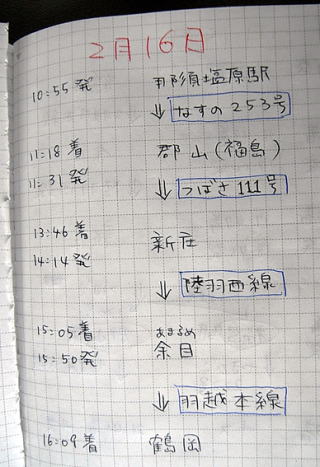 2月16日
10:55発 那須塩原駅
なすの253号
11:18着 郡山(福島)
11:31発
つばさ111号
13:46着 新庄
14:14発
陸羽西線
15:05着 あまるめ
15:50発 余目
羽越本線
16:09着 鶴岡